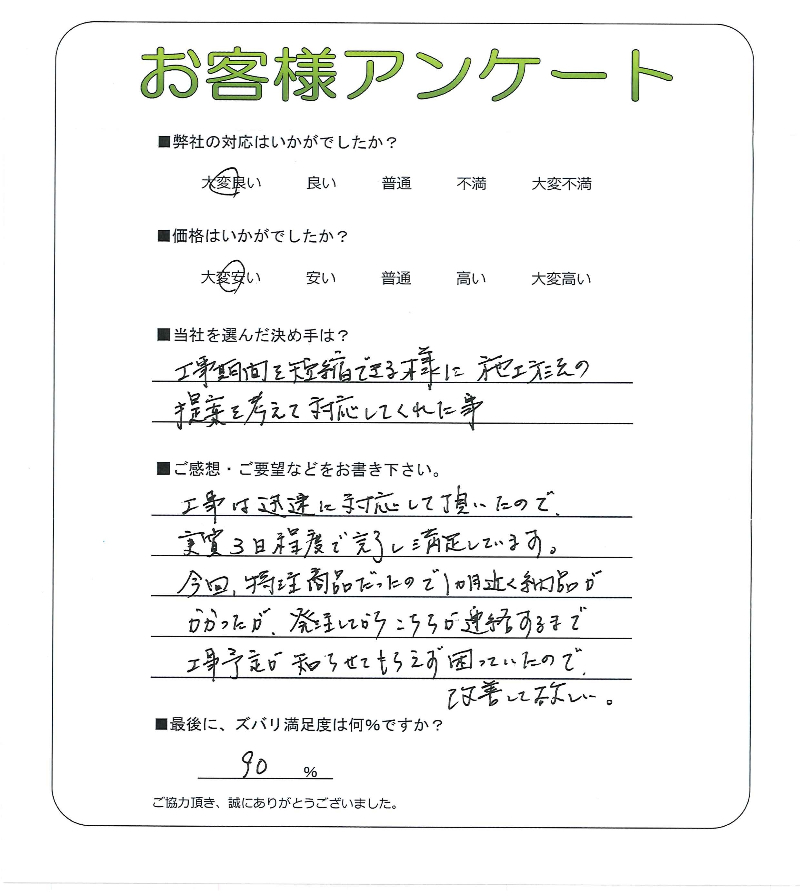 お客様アンケート
■弊社の対応はいかがでしたか？
大変良い 良い 普通 不満 大変不満
■価格はいかがでしたか？
大変安い 安い 普通 高い 大変高い
■当社を選んだ決め手は？
工事期間を短縮できる様に 施工方法の
提案を考えて対応してくれた事
■ご感想・ご要望などをお書き下さい。
工事は迅速に対応して頂いたので、
実質3日程度で完了し満足しています。
今回、特注商品だったので1カ月近く納品が
かかったが、発注してからこちらが連絡するまで
工事予定が知らせてもらえず困っていたので、
改善して欲しい。
■最後に、ズバリ満足度は何%ですか？
90 %
ご協力頂き、誠にありがとうございました。